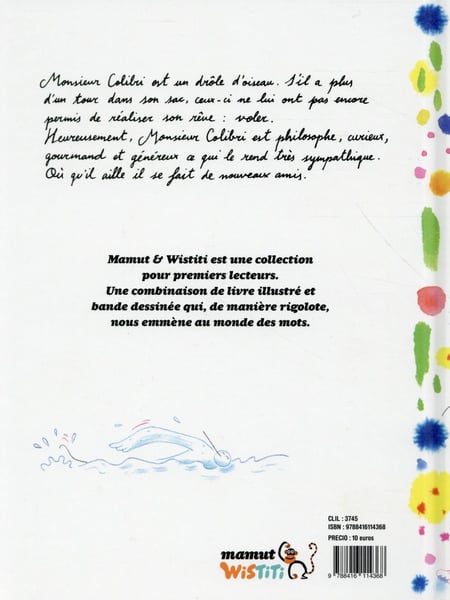 Monsieur Colibri est un drôle d'oiseau. S'il a plus
d'un tour dans son sac, ceux-ci ne lui ont pas encore
permis de réaliser son rêve : voler.
Heureusement, Monsieur Colibri est philosophe, curieux,
gourmand et généreux ce qui le rend très sympathique.
Où qu'il aille il se fait de nouveaux amis.
Mamut & Wistiti est une collection
pour premiers lecteurs.
Une combinaison de livre illustré et
bande dessinée qui, de manière rigolote,
nous emmène au monde des mots.
CLIL : 3745
ISBN : 9788416114368
PRECIO : 10 euros
mamut
WiSTiTi
9 788416 114368